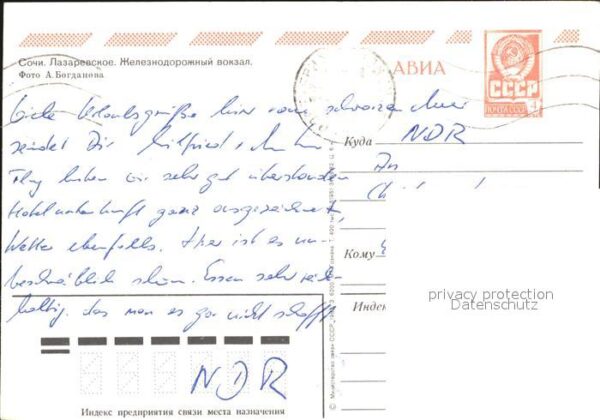 Сочи. Лазаревское. Железнодорожный вокзал.
Фото А. Богданова
АВИА
СССР
ПОЧТА СССР
4
Liebe Urlaubsgrüße hier vom schwarzen Meer
sendet Dir
Flug haben wir sehr gut überstanden
Hotelunterkunft ganz ausgezeichnet,
Wetter ebenfalls. Hier ist es un-
beschreiblich schön. Essen sehr reich-
haltig, das man es gar nicht schafft
Куда
NDR
An
Кому
Индек
privacy protection
Datenschutz
NDR
Индекс предприятия связи места назначения